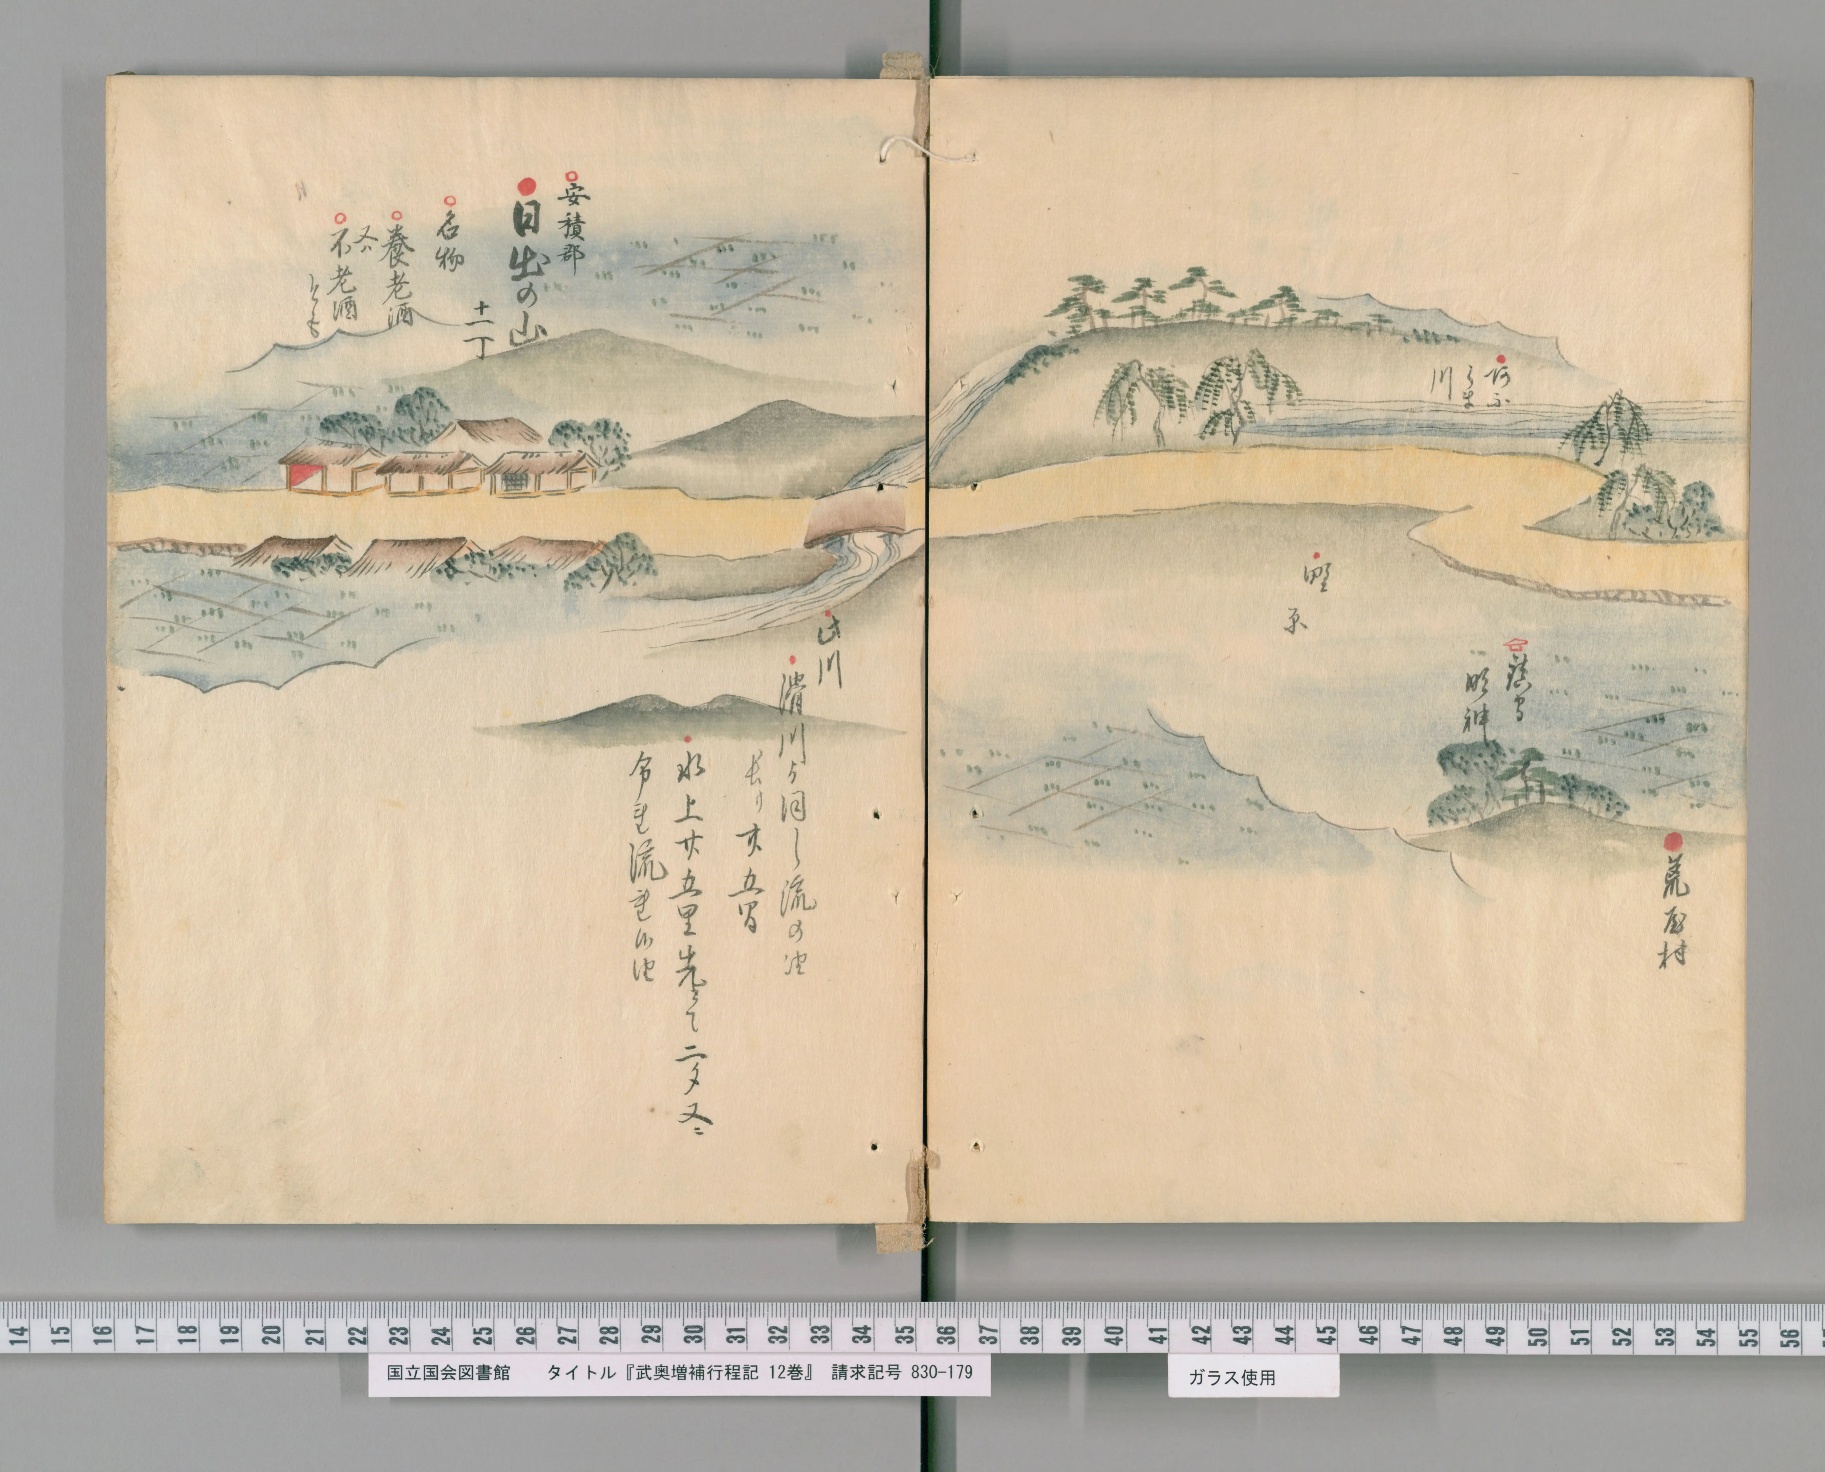 川
野原
鎮守
明神
荒屋村
安積郡
日出の山
十一丁
名物
養老酒
又ハ
不老酒
此川
滑川と同し流の由
長サ廿五間
水上廿五里先にて二夕又ニ
流
14 15 16 17 18 19 20 21 22 23 24 25 26 27 28 29 30 31 32 33 34 35 36 37 38 39 40 41 42 43 44 45 46 47 48 49 50 51 52 53 54 55 56
国立国会図書館 タイトル『武奥増補行程記 12巻』 請求記号 830-179
ガラス使用